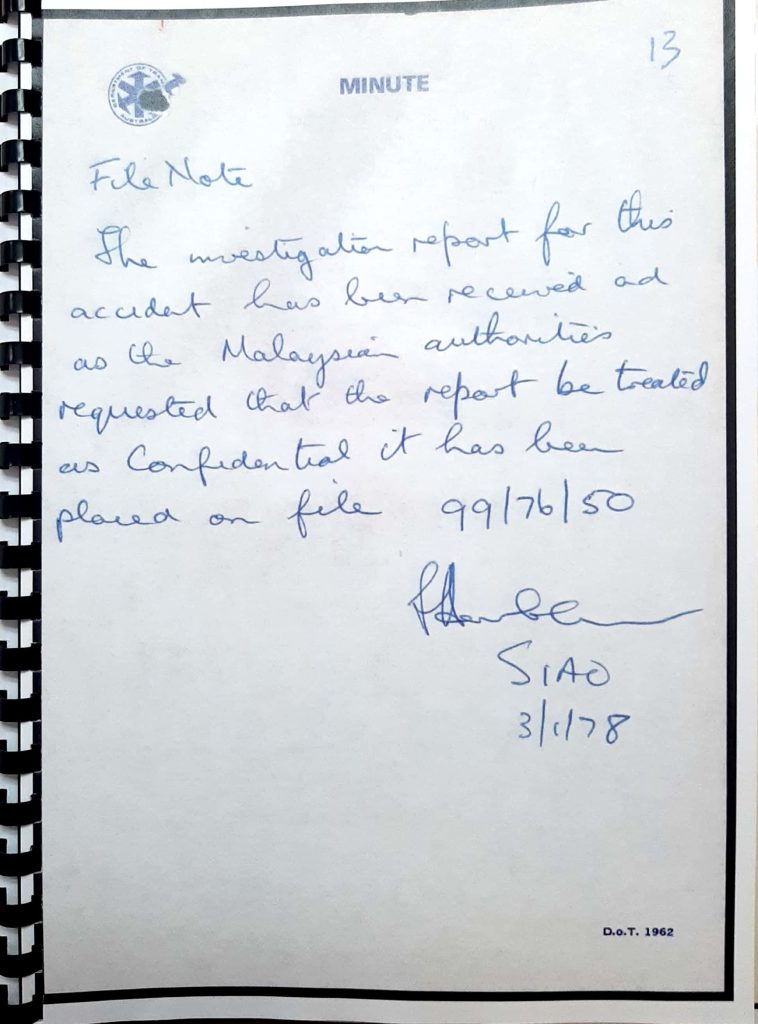 13
DEPARTMENT OF TRAN
AUSTRALIA
MINUTE
File Note
The investigation report for this
accident has been received ad
as the Malaysian authorities
requested that the report be treated
as Confidential it has been
placed on file 99/76/50
SIAO
3/1/78
D.o.T. 1962